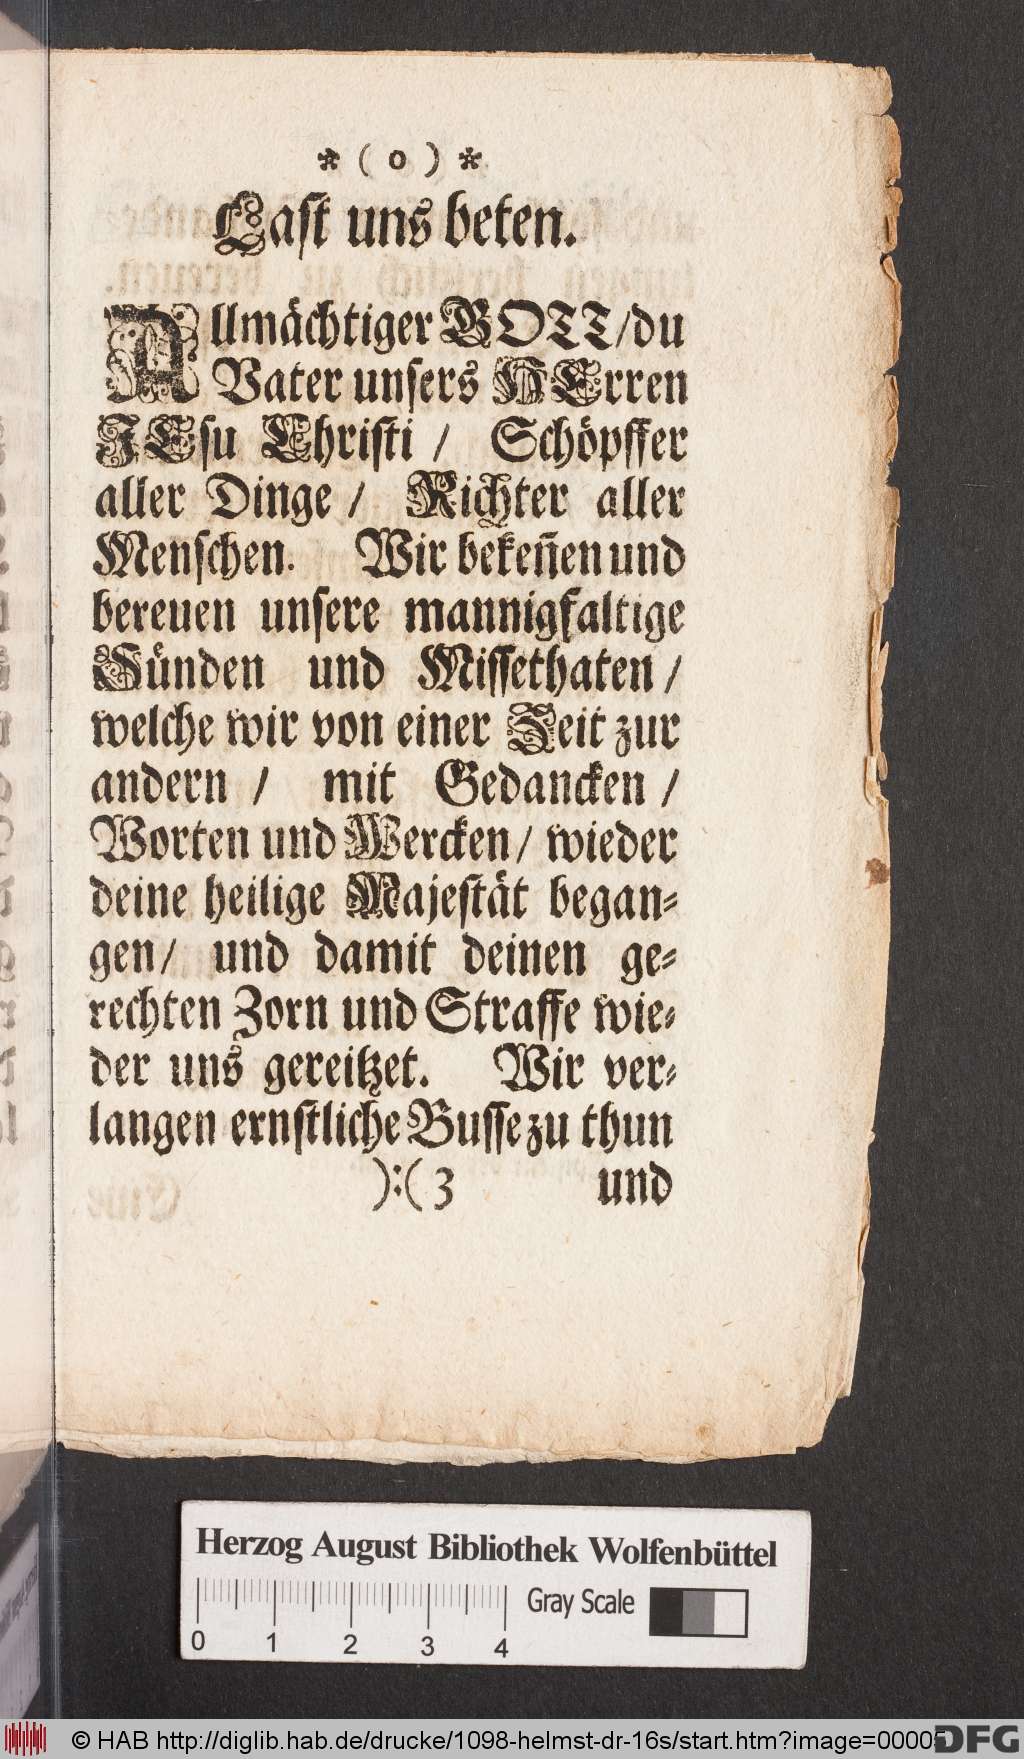 * ( o ) *
Last uns beten.
Allmächtiger GOTT/du
Vater unsers HErren
JEsu Christi / Schöpffer
aller Dinge / Richter aller
Menschen. Wir bekeñen und
bereuen unsere mannigfaltige
Sünden und Missethaten /
welche wir von einer Zeit zur
andern / mit Gedancken /
Worten und Wercken / wieder
deine heilige Majestät began=
gen / und damit deinen ge=
rechten Zorn und Straffe wie=
der uns gereitzet. Wir ver=
langen ernstliche Busse zu thun
):( 3 und
Herzog August Bibliothek Wolfenbüttel
Gray Scale
0 1 2 3 4
© HAB http://diglib.hab.de/drucke/1098-helmst-dr-16s/start.htm?image=00005
DFG